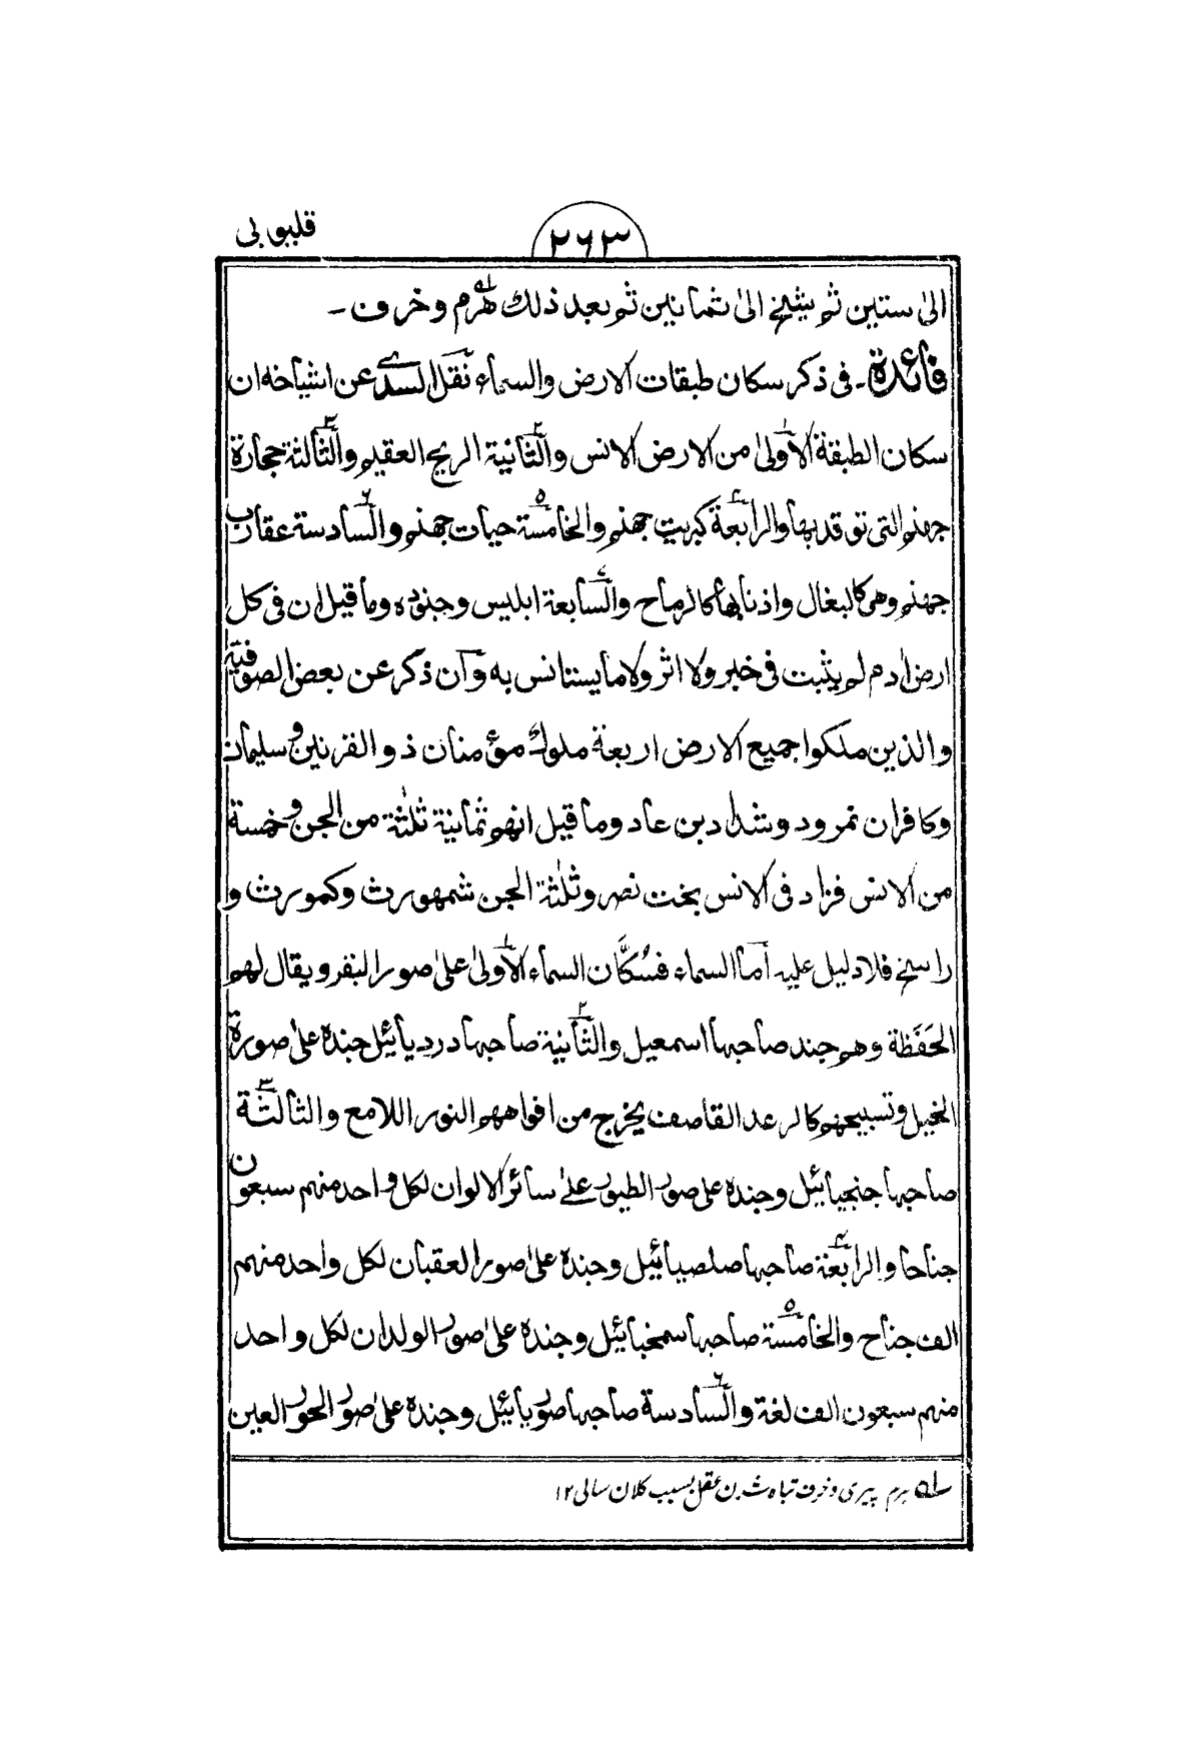 قلیوبی
۲۶۳
الیٰ ستین ثم شیخ الیٰ ثمانین ثم بعد ذلك هرم وخرف۔
فائدة۔ فی ذکر سکان طبقات الارض والسماء نقل السدی عن اشیاخه ان
سکان الطبقة الاولیٰ من الارض الانس والثانیة الریح العقیم والثالثة حجارة
جهنم التی توقد بها والرابعة کبریت جهنم والخامسة حیات جهنم والسادسة عقارب
جهنم وهی کالبغال واذنابها کالرماح والسابعة ابلیس وجنوده وما قیل ان فی کل
ارض اٰدم لم یثبت فی خبر ولا اثر ولا ما یستانس به وان ذکر عن بعض الصوفیة
والذین ملکوا جمیع الارض اربعة ملوك مؤمنان ذو القرنین وسلیمان
وکافران نمرود وشداد بن عاد وما قیل انهم ثمانیة ثلٰثة من الجن وخمسة
من الانس فزاد فی الانس بخت نصر وثلٰثة الجن شمهورث وکمورث و
راسخ فلا دلیل علیه اما السماء فسُکَّان السماء الاولیٰ علیٰ صور البقر ویقال لهم
الحَفَظة وهم جند صاحبها اسمعیل والثانیة صاحبها دردیائیل جنده علیٰ صورة
الخیل وتسبیحهم کالرعد القاصف یخرج من افواههم النور اللامع والثالثة
صاحبها جنجیائیل وجنده علی صور الطیور علیٰ سائر الالوان لکل واحد منهم سبعون
جناحا والرابعة صاحبها صلصیائیل وجنده علیٰ صور العقبان لکل واحد منهم
الف جناح والخامسة صاحبها سمخیائیل وجنده علیٰ صور الولدان لکل واحد
منهم سبعون الف لغة والسادسة صاحبها صوریائیل وجنده علیٰ صور الحور العین
لہ ہرم پیری وخرف تباہ شدن عقل بسبب کلان سالی ۱۲